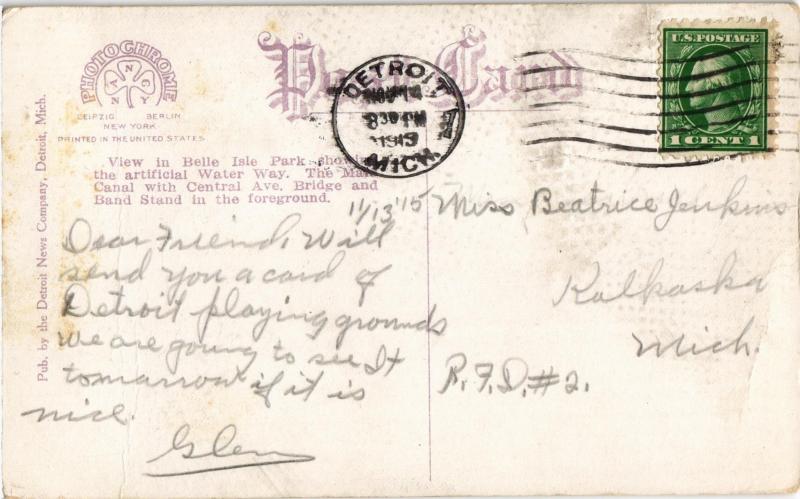 PHOTOCHROME
ANGNY
LEIPZIG BERLIN
NEW YORK
PRINTED IN THE UNITED STATES
Post Card
DETROIT
8 30 PM
MICH.
U.S. POSTAGE
1 CENT 1
Pub. by the Detroit News Company, Detroit, Mich.
View in Belle Isle Park
the artificial Water Way. The Main
Canal with Central Ave. Bridge and
Band Stand in the foreground.
11/13 '15
Dear Friend, Will
send you a card of
Detroit playing grounds
we are going to see It
tomarrow if it is
nice.
Glen
Miss Beatrice Jenkins
Kalkaska
Mich.
R.F.D. #2.